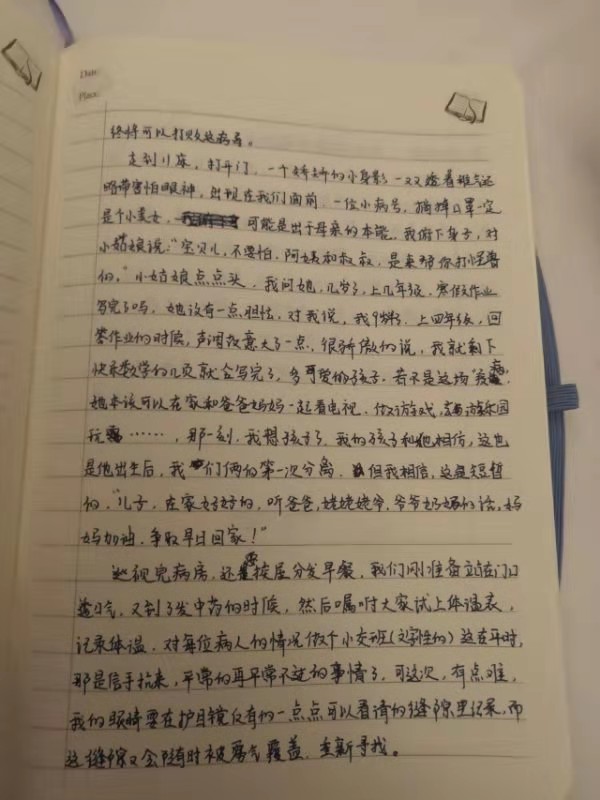 Date
Place
终将可以打败这病毒。
走到11床，打开门，一个娇娇的小身影，一双透着稚气还
略带害怕眼神，出现在我们面前，一位小病号，摘掉口罩一定
是个小美女，可能是出于母亲的本能，我俯下身子，对
小姑娘说："宝贝儿，不要怕，阿姨和叔叔，是来帮你打怪兽
的。"小姑娘点点头，我问她，几岁了，上几年级，寒假作业
写完了吗，她没有一点胆怯，对我说，我9岁了，上四年级，回
答作业的时候，声调故意大了一点，很骄傲的说，我就剩下
快乐数学的几页就会写完了，多可爱的孩子，若不是这场"疫病"，
她本该可以在家和爸爸妈妈一起看电视，做游戏，去游乐园
玩……，那一刻，我想孩子了，我的孩子和她相仿，这也
是他出生后，我们俩的第一次分离，但我相信，这是短暂
的，"儿子，在家好好的，听爸爸，姥姥姥爷，爷爷奶奶的话，妈
妈加油，争取早日回家！"
巡视完病房，还要按屋分发早餐，我们刚准备立在门口
透口气，又到了发中药的时候，然后嘱咐大家试上体温表，
记录体温，对每位病人的情况做个小交班（文字性的）这在平时，
那是信手拈来，平常的再平常不过的事情了，可这次，有点难，
我的眼睛要在护目镜仅有的一点点可以看清的缝隙里记录，而
这缝隙又会随时被雾气覆盖，重新寻找。